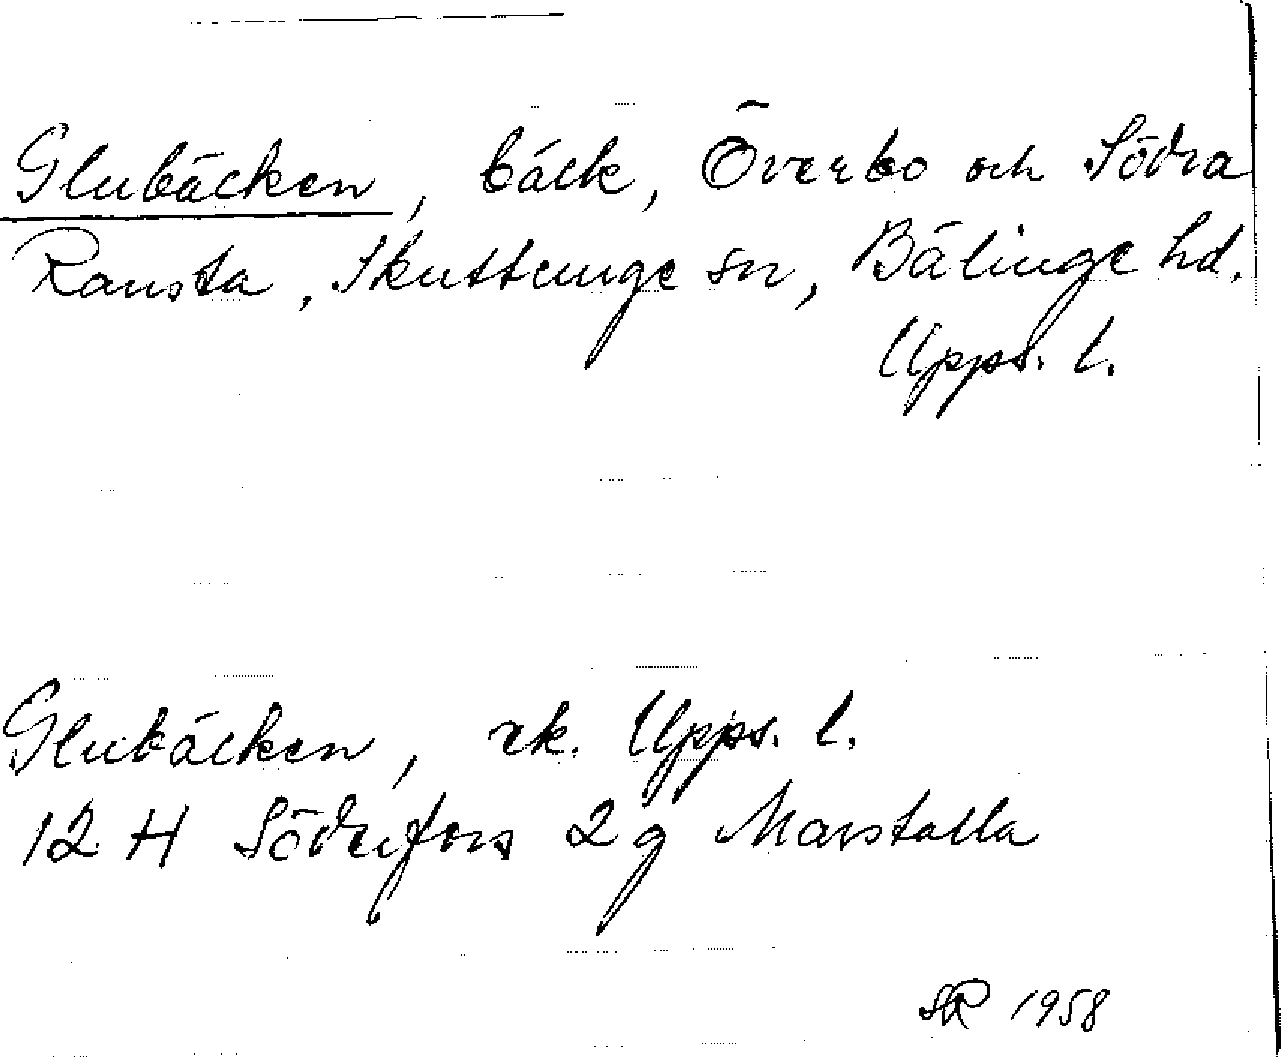 Glubäcken, bäck, Överbo och Södra
Ransta, Skuttunge sn, Bälinge hd.
Upps. l.
Glubäcken, rk. Upps. l.
12 H Söderfors 2 g Marstalla
SR 1958